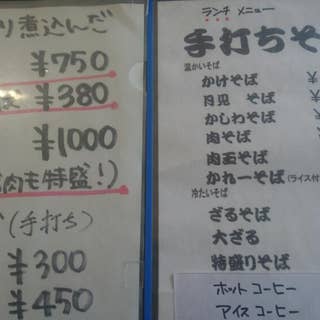 り煮込んだ
¥750
¥380
¥1000
肉も特盛!)
(手打ち)
¥300
¥450
ランチ メニュー
手打ちそ
温かいそば
かけそば
月見 そば
かしわそば
肉そば
肉玉そば
かれーそば(ライス付
冷たいそば
ざるそば
大ざる
特盛りそば
ホット コーヒー
アイス コーヒー